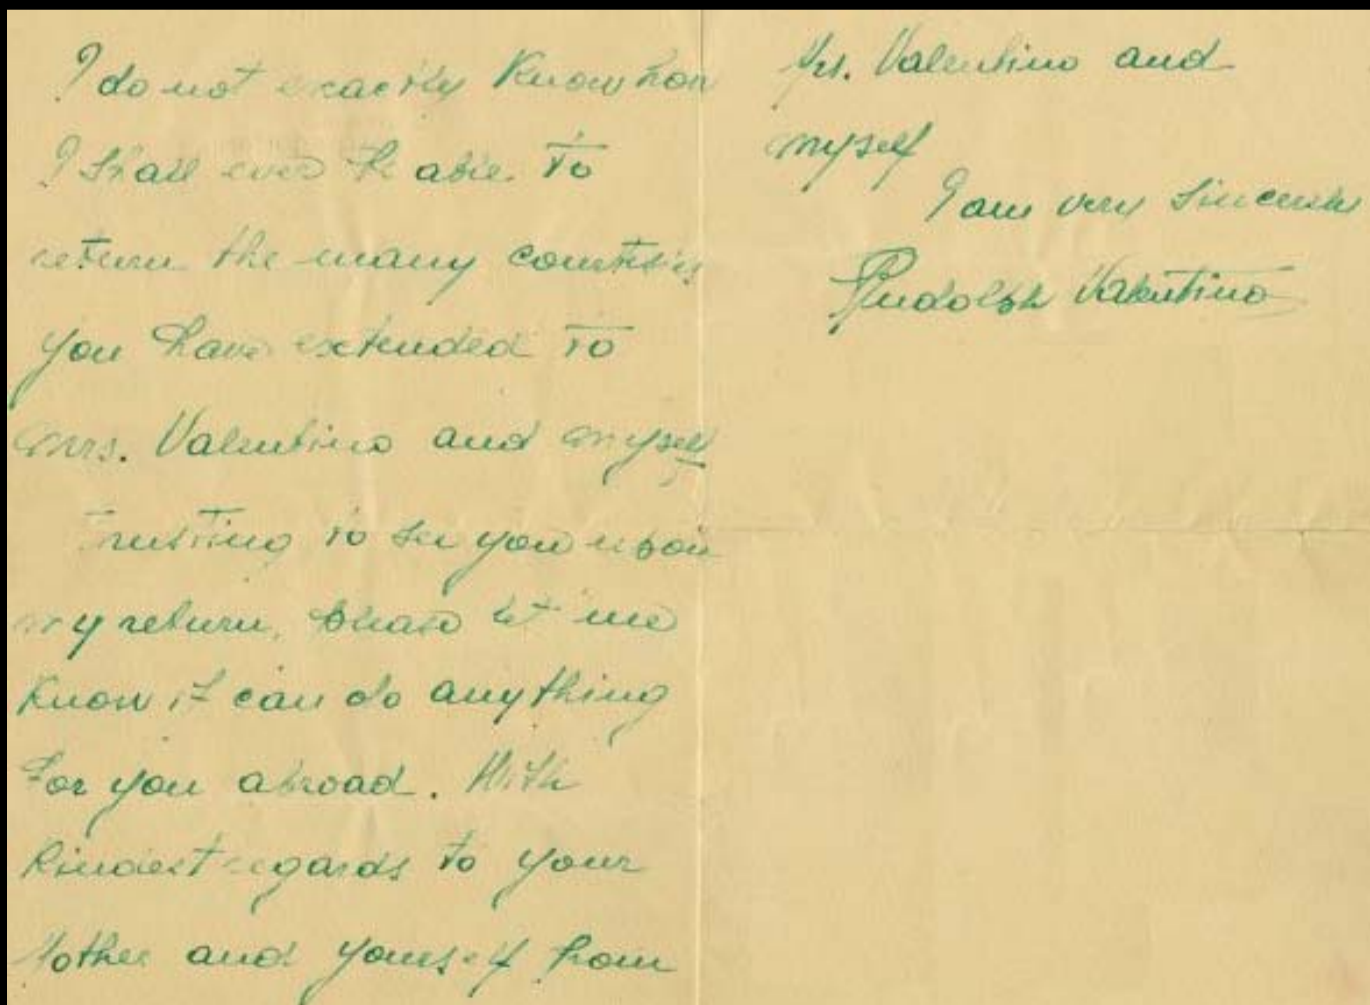 I do not exactly Know how
I shall ever be able to
return the many courtesies
you have extended to
Mrs. Valentino and myself
Trusting to see you upon
my return, please let me
Know if can do anything
for you abroad. With
Kindest regards to your
Mother and yourself from
Mrs. Valentino and
myself
I am very sincerely
Rudolph Valentino